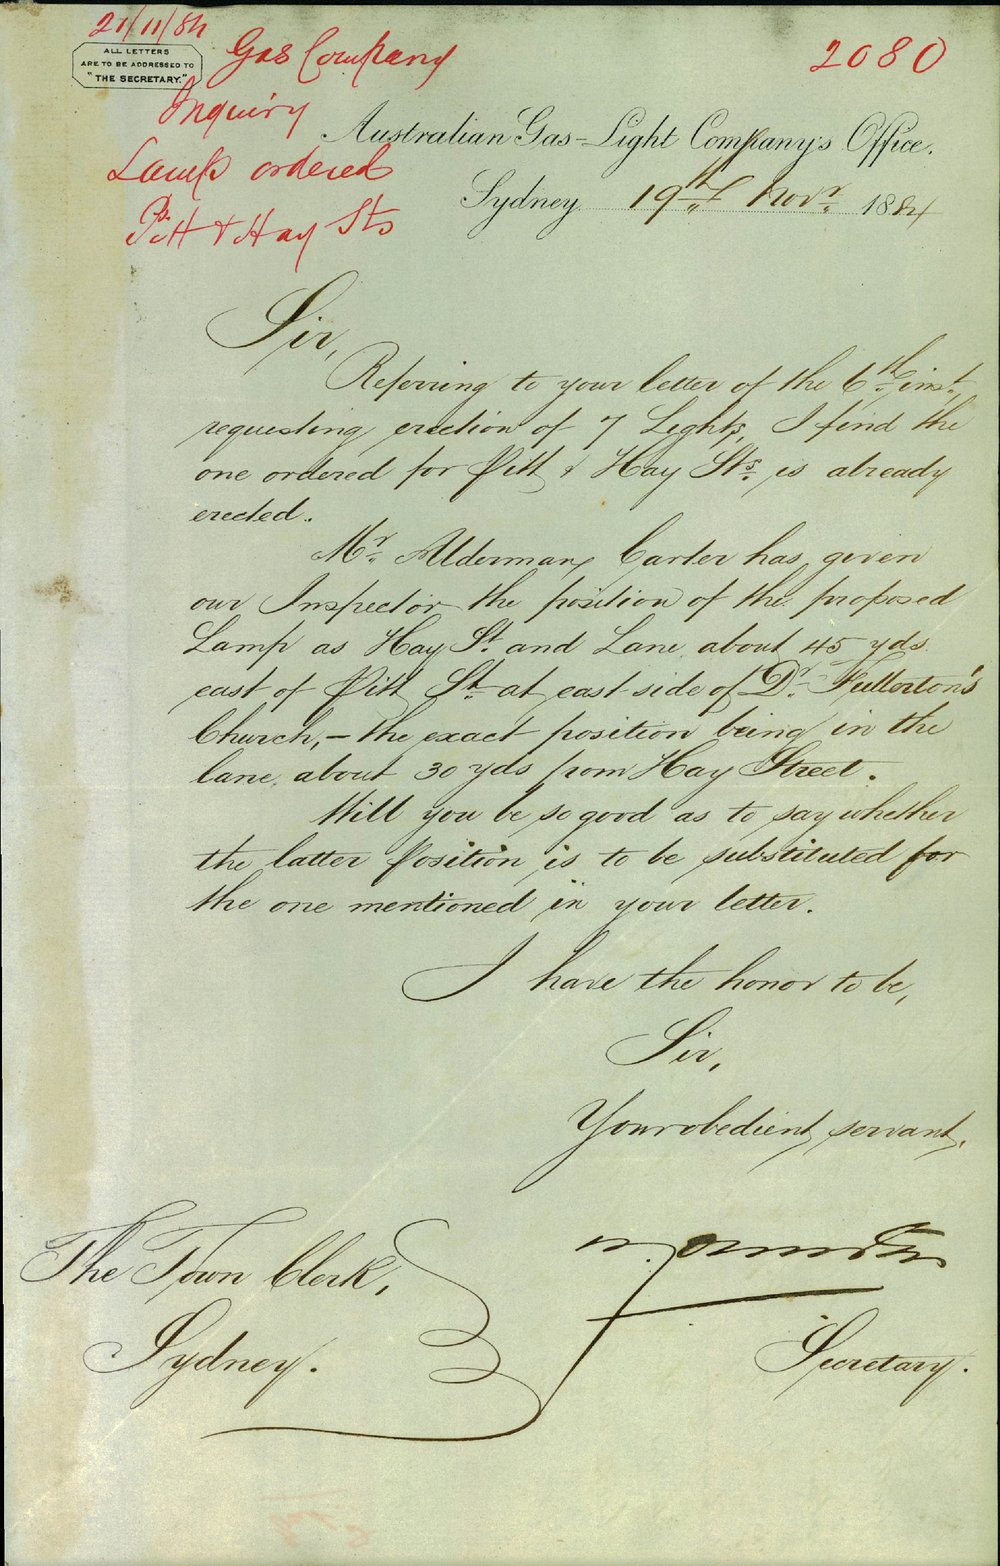 21/11/84
ALL LETTERS
ARE TO BE ADDRESSED TO
"THE SECRETARY."
Gas Company
Inquiry
Lamp ordered
Pitt & Hay Sts
2080
Australian Gas-Light Company's Office.
Sydney 19th Novr. 1884
Sir,
Referring to your letter of the 6th inst.,
requesting erection of 7 Lights, I find the
one ordered for Pitt & Hay Sts. is already
erected.
Mr. Alderman Carter has given
our Inspector the position of the proposed
Lamp as Hay St. and Lane about 45 yds.
east of Pitt St. at east side of Dr. Fullerton's
Church, - the exact position being in the
lane about 30 yds from Hay Street.
Will you be so good as to say whether
the latter position is to be substituted for
the one mentioned in your letter.
I have the honor to be,
Sir,
Your obedient servant,
The Town Clerk,
Sydney.
Secretary.